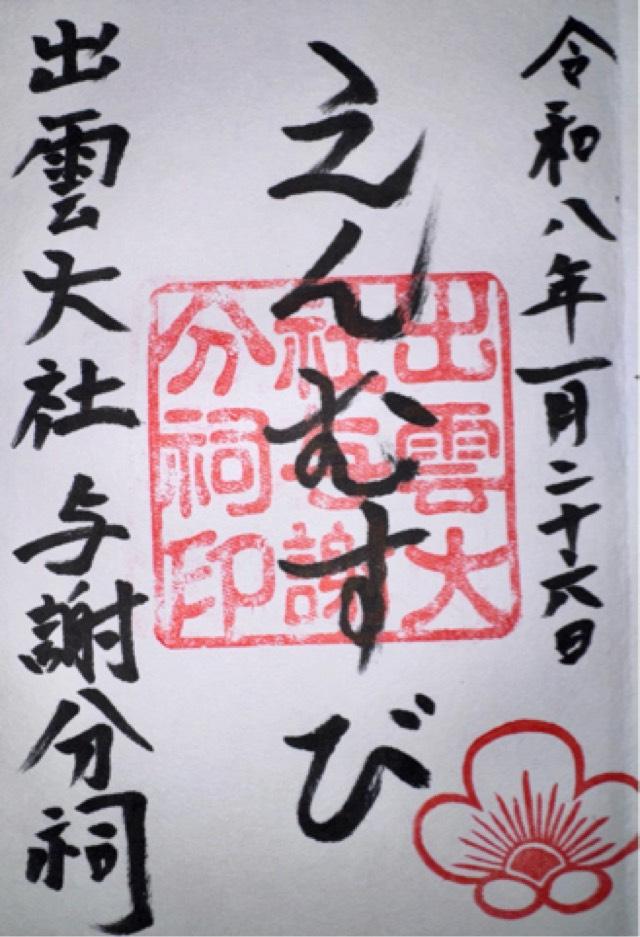 令和八年一月二十六日
えんむすび
出雲大社 与謝分祠
出雲大
社与謝
分祠印